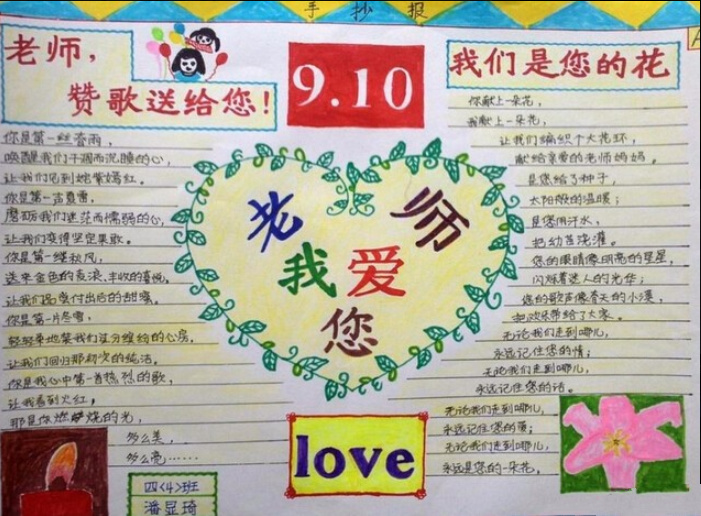 手抄报
老师,
赞歌送给您!
你是第一丝春雨,
唤醒我们干涸而沉睡的心,
让我们见到姹紫嫣红。
你是第一声夏雷,
磨砺我们迷茫而懦弱的心,
让我们变得坚定果敢。
你是第一缕秋风,
送来金色的麦浪、丰收的喜悦,
让我们品受付出后的甜蜜。
你是第一片冬雪,
轻轻来地装我们缤纷的心房,
让我们回归那初次的纯洁。
你是我心中第一首热烈的歌,
让我看到火红,
那是你燃烧的光,
多么美,
多么亮……
四<4>班
潘显琦
9.10
老师
我爱
您
love
我们是您的花
你献上一朵花,
我献上一朵花,
让我们编织个大花环,
献给亲爱的老师妈妈。
是您给了种子,
太阳般的温暖;
是您用汗水,
把幼苗浇灌。
您的眼睛像明亮的星星,
闪烁着迷人的光华;
您的歌声像春天的小溪,
把欢乐带给了大家。
无论我们走到哪儿,
永远记住您的情;
无论我们走到哪儿,
永远记住您的话。
无论我们走到哪儿,
永远记住您的爱;
无论我们走到哪儿,
永远是您的一朵花。